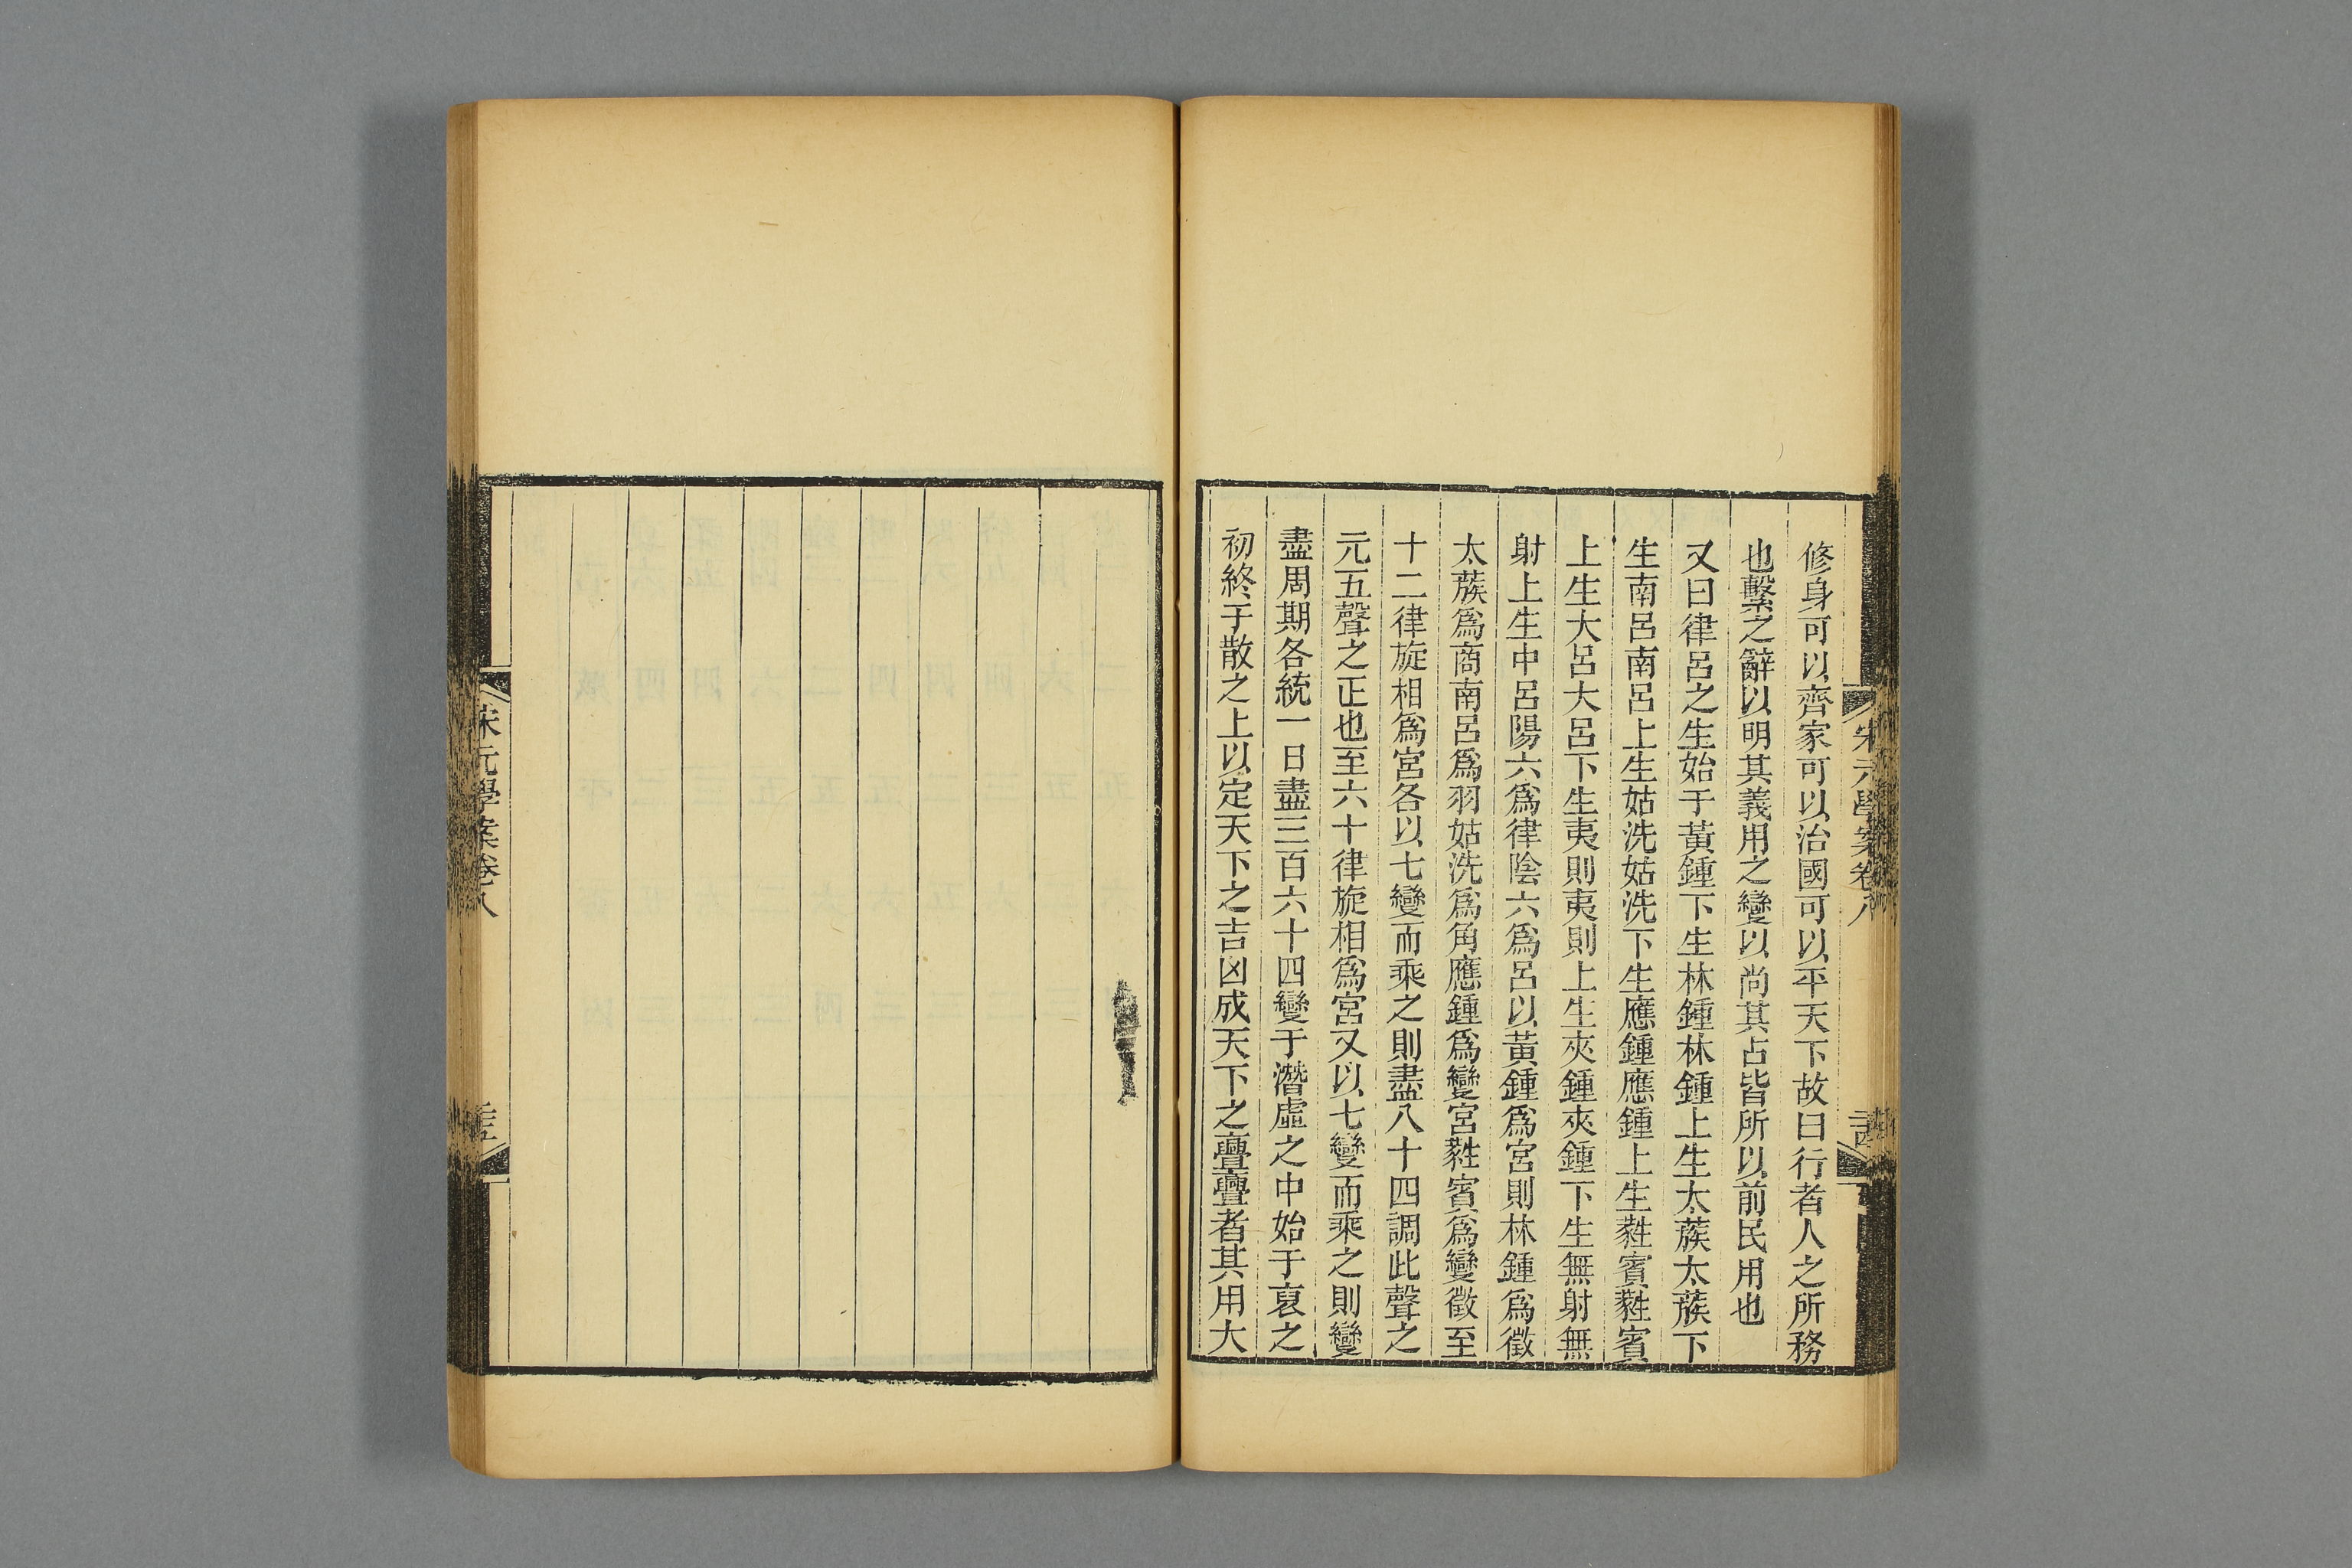 修身可以齊家可以治國可以平天下故曰行者人之所務
也繫之辭以明其義用之變以尚其占皆所以前民用也
又曰律呂之生始于黃鍾下生林鍾林鍾上生太蔟太蔟下
生南呂南呂上生姑洗姑洗下生應鍾應鍾上生蕤賓蕤賓
上生大呂大呂下生夷則夷則上生夾鍾夾鍾下生無射無
射上生中呂陽六爲律陰六爲呂以黃鍾爲宮則林鍾爲徵
太蔟爲商南呂爲羽姑洗爲角應鍾爲變宮蕤賓爲變徵至
十二律旋相爲宮各以七變而乘之則盡八十四調此聲之
元五聲之正也至六十律旋相爲宮又以七變而乘之則變
盡周期各統一日盡三百六十四變于潛虛之中始于裒之
初終于散之上以定天下之吉凶成天下之亹亹者其用大
宋元學案卷八
宋元學案卷八